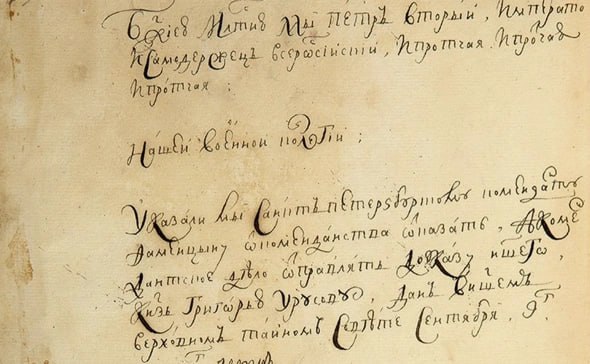 Бжиею млтию Мы Петръ вторый, Императо
и Самодержецъ всеросиискии, и протчая и протчая
и протчая:
Нашей военной колегии:
Указали мы Санктъ петербургскому коменданту
от комендантства отказать, а коме
дантское дѣло отправлять до указу ншего,
Князь Григорью Урусову, Данъ в нашемъ
верховномъ тайномъ Совѣте Сентября, 9г